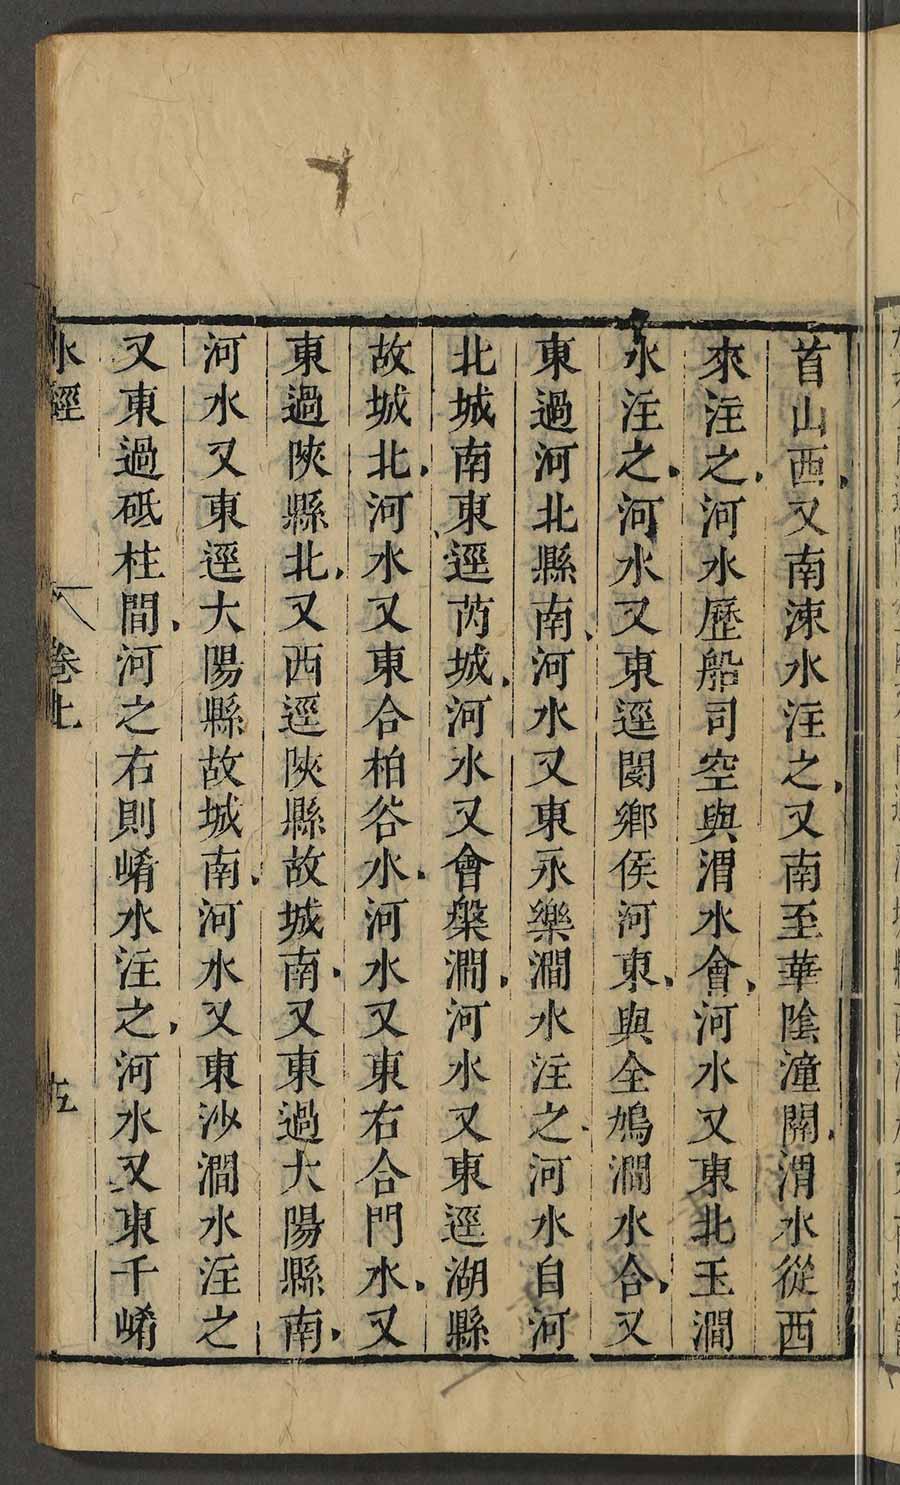 首山西又南涑水注之又南至華陰潼關渭水從西
來注之河水歷船司空與渭水會河水又東北玉澗
水注之河水又東逕閿鄉侯河東與全鳩澗水合又
東過河北縣南河水又東永樂澗水注之河水自河
北城南東逕芮城河水又會槃澗河水又東逕湖縣
故城北河水又東合柏谷水河水又東右合門水又
東過陝縣北又西逕陝縣故城南又東過大陽縣南
河水又東逕大陽縣故城南河水又東沙澗水注之
又東過砥柱間河之右則崤水注之河水又東千崤
水經 卷上 五